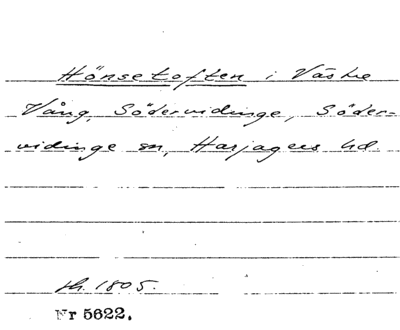 Hönsetoften i Västre
Vång, Södervidinge, Söder-
vidinge sn, Harjagers hd.
sk. 1805.
Nr 5622.